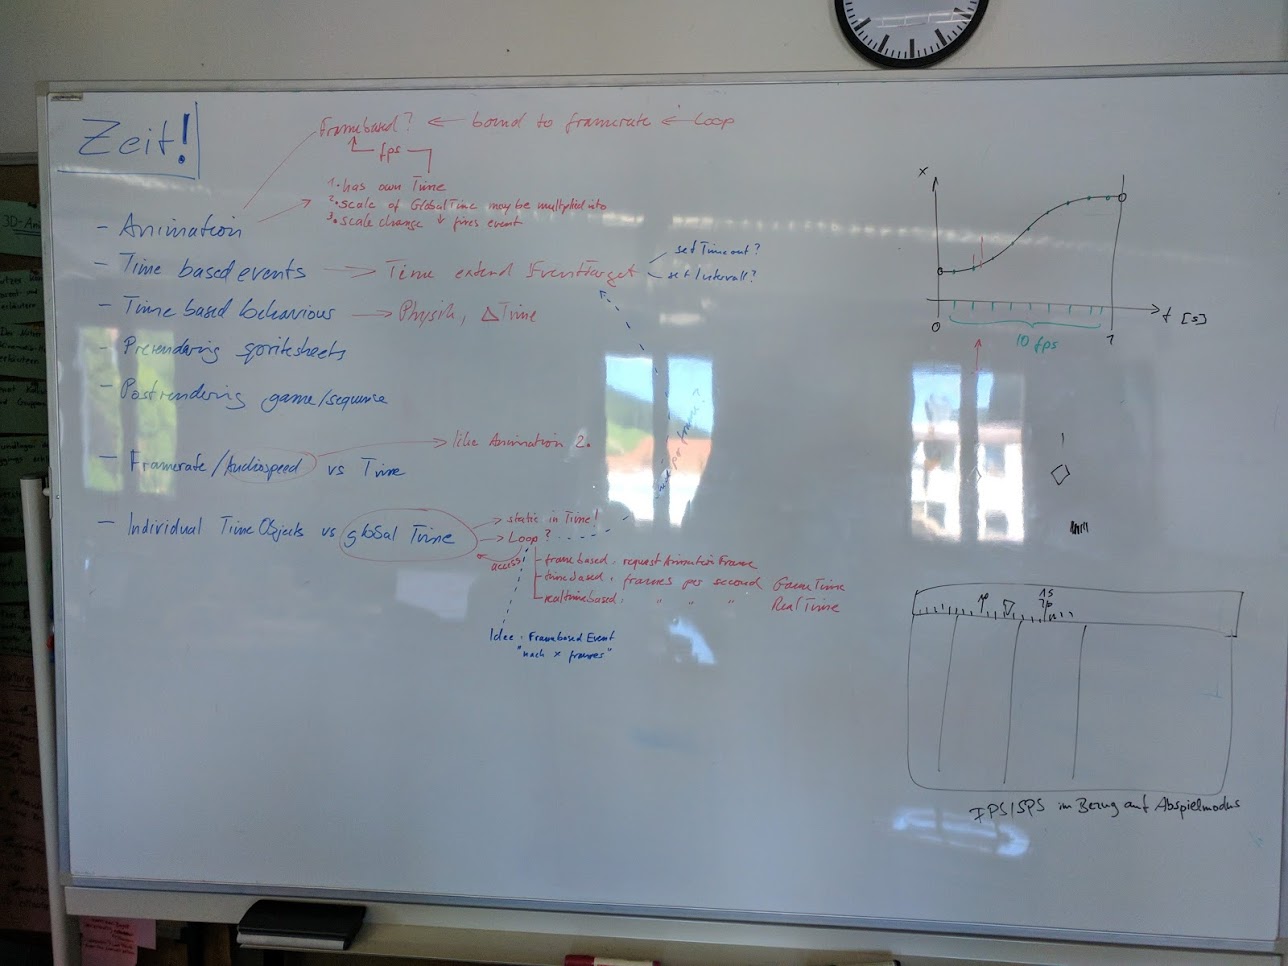 Zeit!
Framebased? ← bound to framerate ← Loop
fps
1. has own Time
2. scale of Global Time may be multiplied into
3. scale change ↓ fires event
- Animation
- Time based events → Time extend EventTarget
setTimeout?
setIntervall?
- Time based behavious → Physik, △Time
- Prerendering spritesheets
- Postrendering game/sequence
→ like Animation 2.
- Framerate/Audiospeed vs Time
- Individual Time Objects vs global Time
→ static in Time!
→ Loop?
access
framebased: requestAnimationFrame
timebased: frames per second GameTime
realtimebased: " " " RealTime
Idee: Framebased Event
"nach x frames"
per frame?
x
0
1
t [s]
10 fps
1s
FPS/SPS im Bezug auf Abspielmodus
3D-An